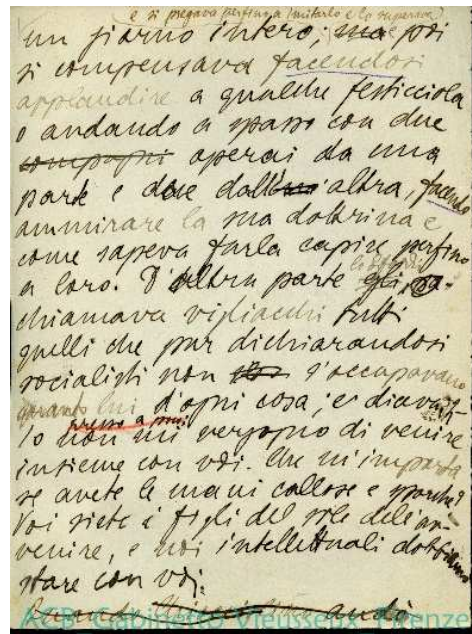 e si pregava perfino a imitarlo e lo superava
un giorno intero; ma poi
si compensava facendosi
applaudire a qualche festicciola
o andando a spasso con due
compagni operai da una
parte e due dall'altra, facendo
ammirare la sua dottrina e
come sapeva farla capire perfino
a loro. D'altra parte
chiamava vigliacchi tutti
quelli che pur dichiarandosi
socialisti non s'occupavano
quanto lui d'ogni cosa; e diceva:
presso a poco
Io non mi vergogno di venire
insieme con voi. Che m'importa
se avete le mani callose e sporche?
Voi siete i figli del sole dell'av-
venire, e noi intellettuali dobbiamo
stare con voi.
ACB Gabinetto Vieusseux Firenze